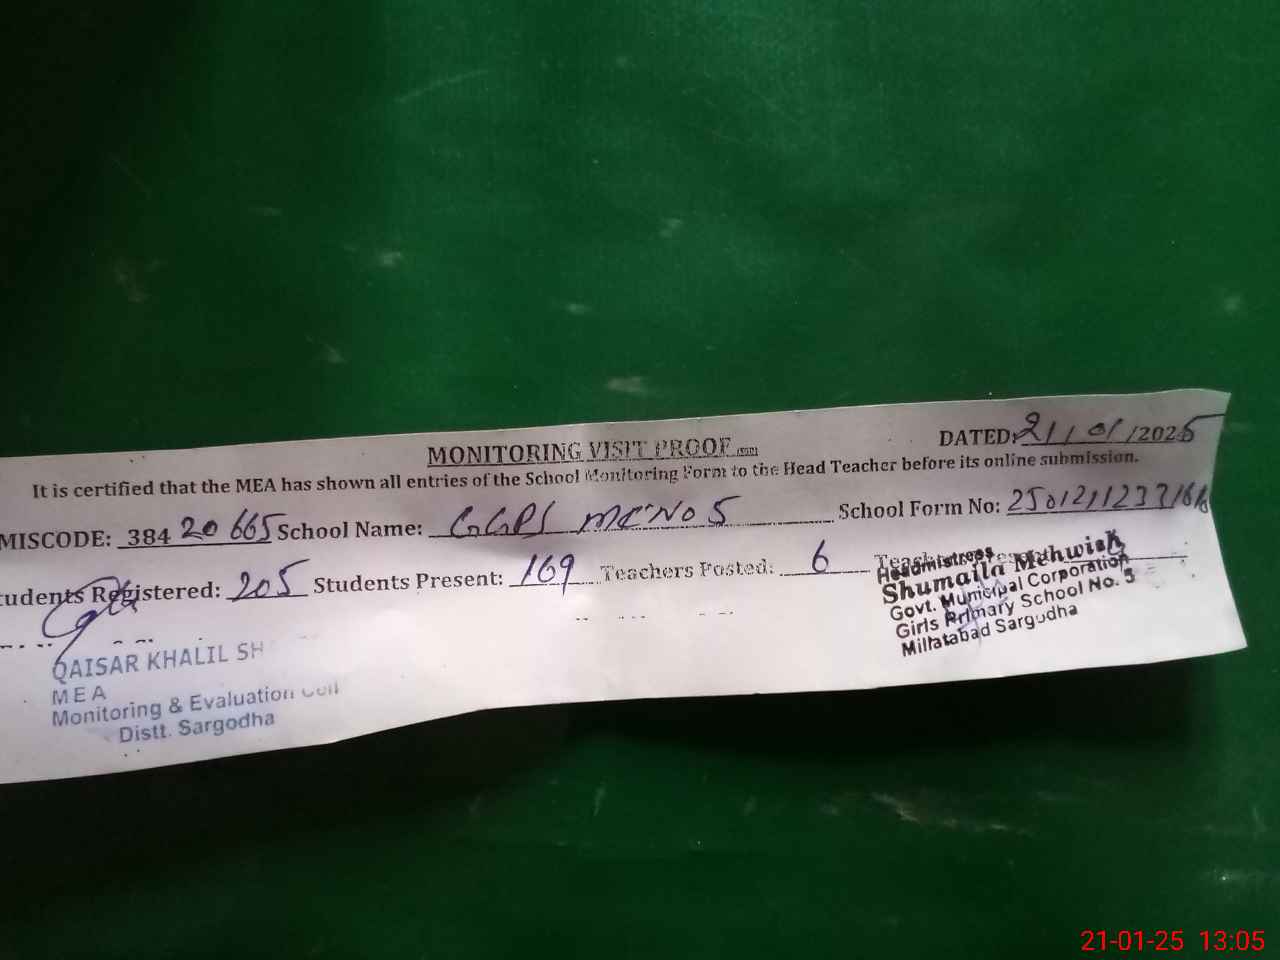 MONITORING VISIT PROOF
DATED: 21/01/2025
It is certified that the MEA has shown all entries of the School Monitoring Form to the Head Teacher before its online submission.
MISCODE: 384 20665 School Name: GGPS MC No 5 School Form No:
tudents Registered: 205 Students Present: 169 Teachers Posted: 6
Headmistress
Shumaila Mehwish
Govt. Municipal Corporation
Girls Primary School No. 5
Millatabad Sargodha
QAISAR KHALIL SH
MEA
Monitoring & Evaluation Cell
Distt. Sargodha
21-01-25 13:05